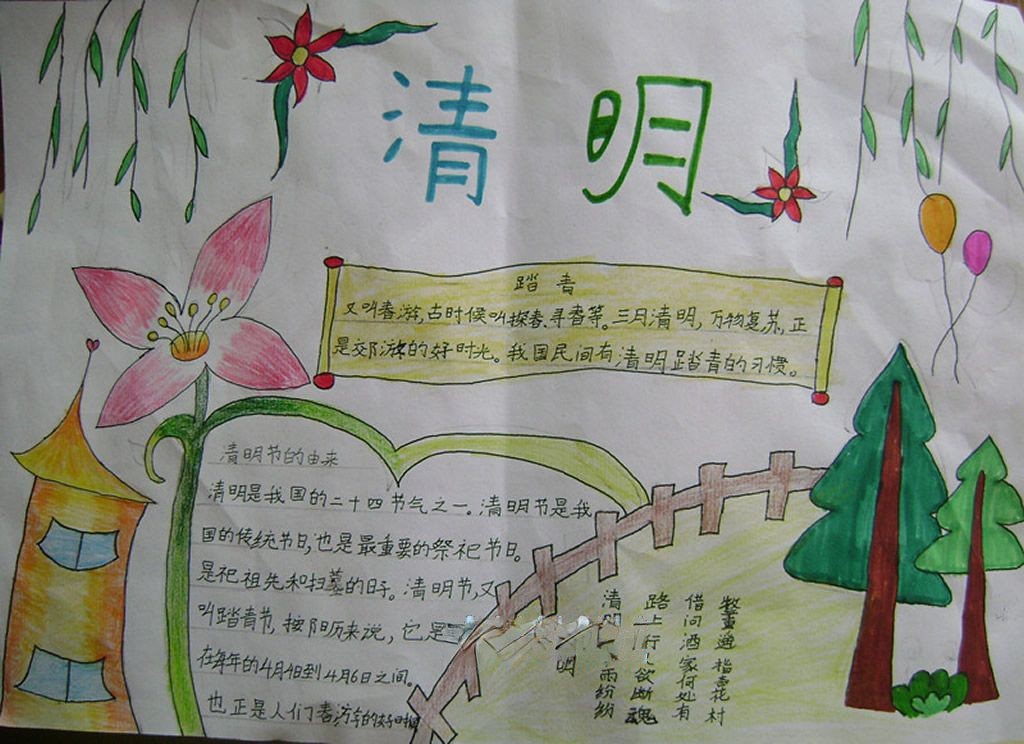 清明
踏青
又叫春游,古时候叫探春、寻春等。三月清明,万物复苏,正
是郊游的好时光。我国民间有清明踏青的习惯。
清明节的由来
清明是我国的二十四节气之一。清明节是我
国的传统节日,也是最重要的祭祀节日。
是祀祖先和扫墓的日子。清明节,又
叫踏青节,按阳历来说,它是
在每年的4月4日到4月6日之间。
也正是人们春游的好时
清明 雨纷纷
路上行 欲断魂
借问酒家何处有
遥指杏花村
明